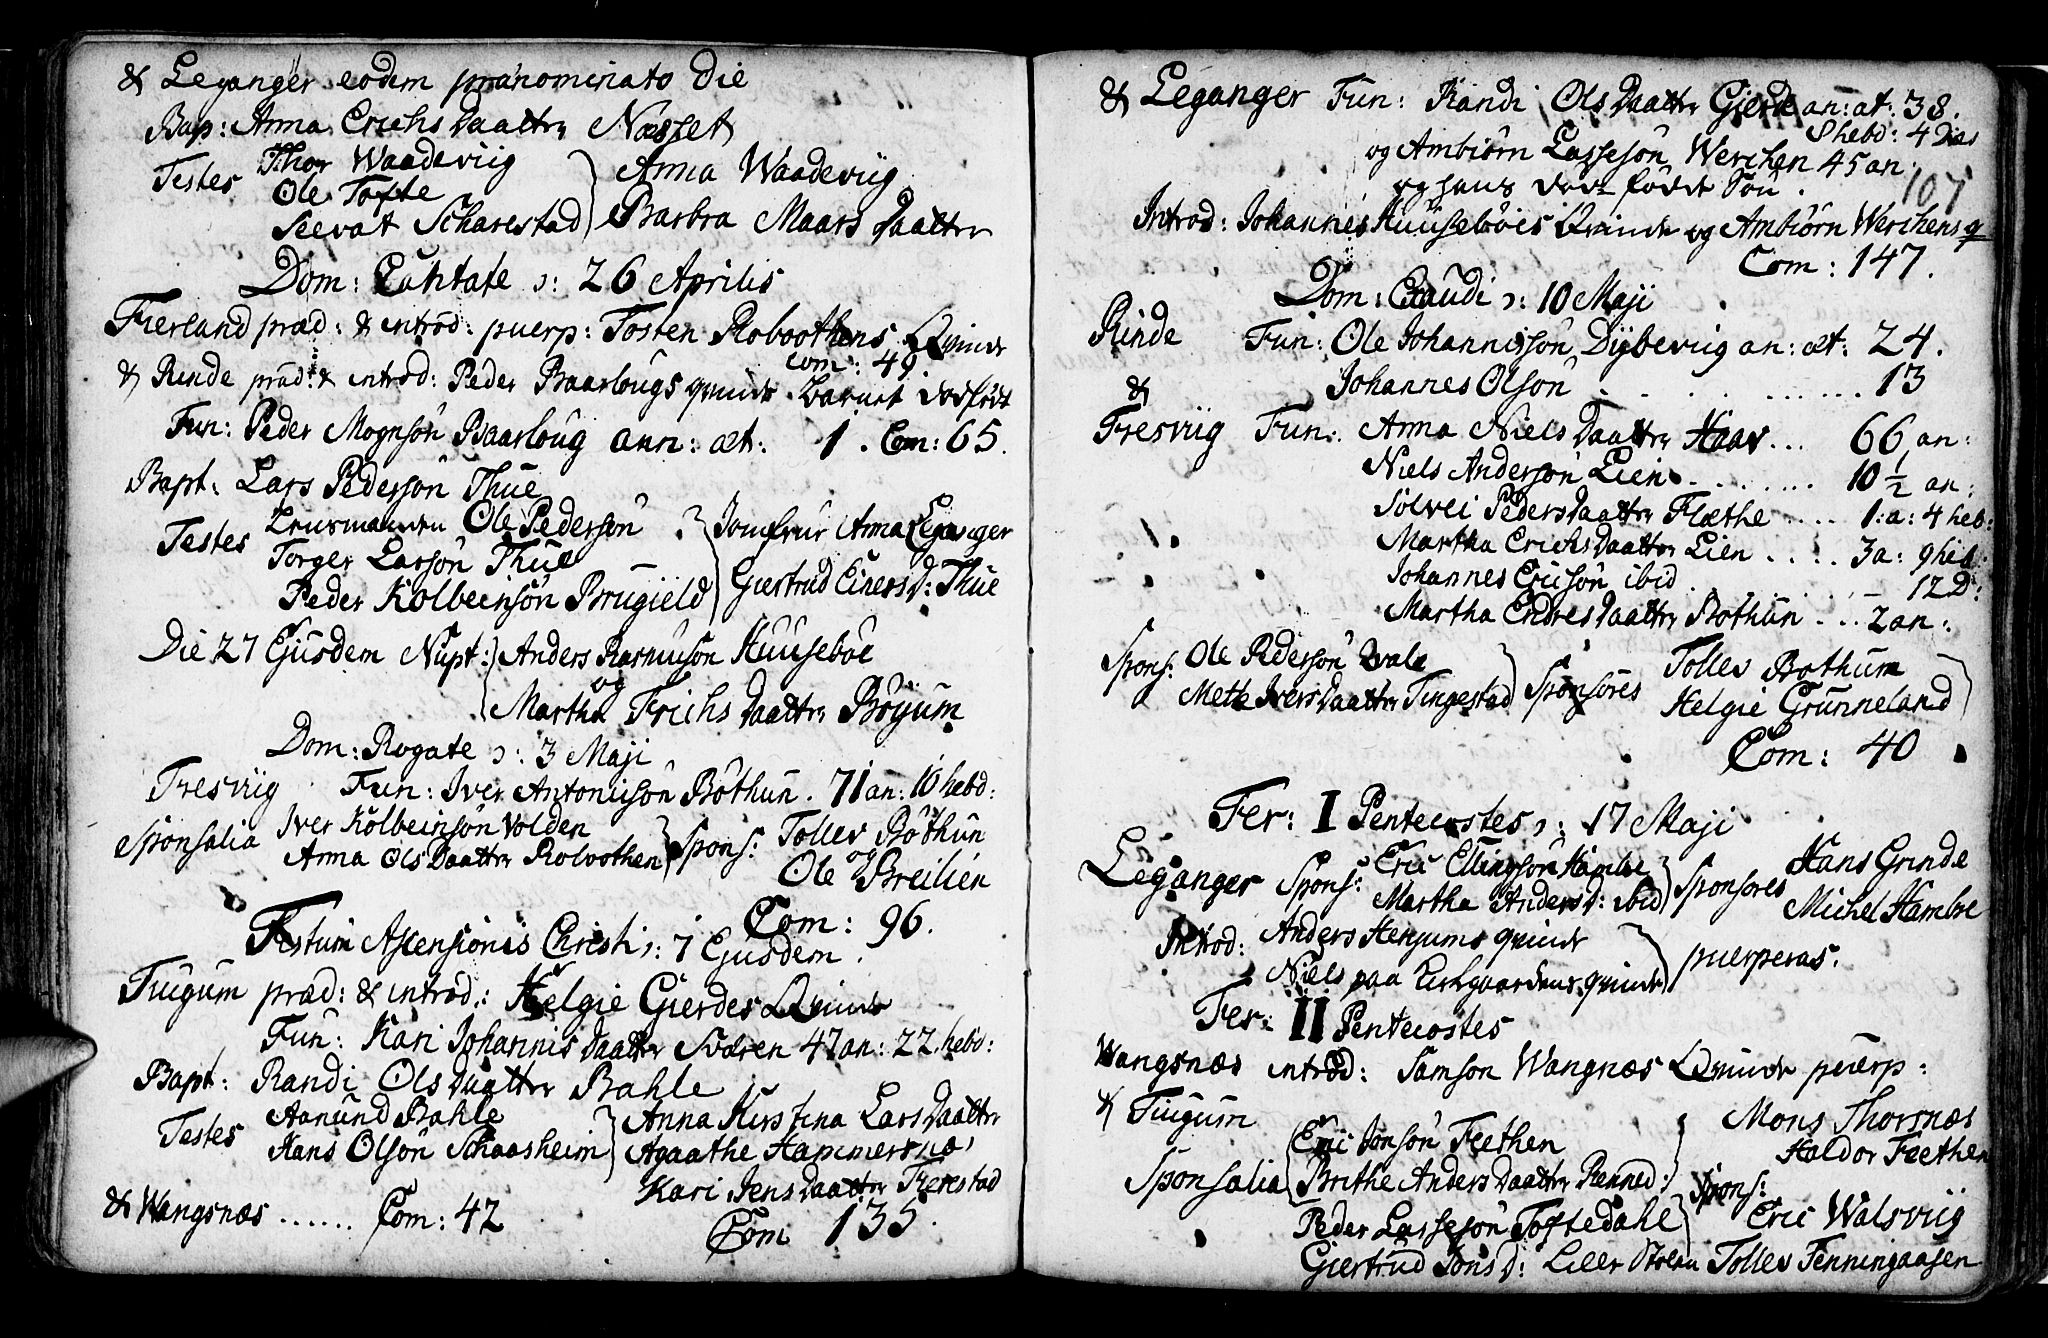 & Leganger eodem prænominato Die
Bap: Anna Erichs Daatter Næsset
Testes Thor Waadeviig
Ole Tofte
Seevat Scharestad
Anna Waadeviig
Barbra Maars Daatter
Dom: Cantate ɔ: 26 Aprilis
Fierland præd: & introd: puerp: Tosten Roboothens Qvinde
Com: 49.
& Rinde præd: & introd: Peder Baarlougs qvinde. Barnet dødfødt
Fun: Peder Mognsön Baarloug ann: æt: 1. Com: 65.
Bapt: Lars Pedersön Thue
Testes Lensmanden Ole Pedersön
Torger Larsön Thue
Peder Kolbeinsön Brugield
Jomfrue Anna Leganger
Giertrud Einers D: Thue
Die 27 Ejusdem Nupt: Anders Rasmusön Huuseböe
og
Martha Erichs Daatter Böyum
Dom: Rogate ɔ: 3 Maji
Fresviig Fun: Iver Antonisön Böthun. 71 an: 10 hebd:
Sponsalia Iver Kolbeinsön Volden
Anna Ols Daatter Roboothen
Spons: Tollev Böthun
og
Ole Breilien
Com: 96.
Festum Ascensionis Christi ɔ: 7 Ejusdem.
Tiugum præd: & introd.: Helgie Gierdes Qvinde
Fun: Kari Johannis Daatter Sværen 47 an: 22 hebd:
Bapt: Randi Ols Daatter Bahle
Testes Aanund Bahle
Hans Olsön Schaasheim
Anna Kirstina Lars Daatter
Agaathe Hammersnæs
Kari Jens Daatter Ferestad
& Wangsnæs ...... Com: 42
Com 135.
& Leganger Fun: Randi Ols Daatter Gierde an: æt: 38.
8 hebd: 4 Dies
og Ambiörn Lassesön Werchen 45 an.
og hans dödfödt Sön.
107
Introd: Johannes Huuseböes Qvinde og Ambiörn Werchens q
Com: 147.
Dom: Exaudi ɔ: 10 Maji
Rinde Fun: Ole Johannissön Dybeviig an: æt: 24.
Johannes Olsön . . . . 13
&
Fresviig Fun: Anna Niels Daatter Haav ... 66 an:
Niels Andersön Lien ........ 10 ½ an:
Sölvei Peders Daatter Flæthe .... 1: a: 4 heb:
Martha Erichs Daatter Lien ..... 3 a: 9 heb:
Johannes Ericsön ibid ........ 12 D:
Martha Endres Daatter Böthun ... 2 an:
Spons: Ole Pedersön Qvale
Mette Ivers Daatter Tingestad
Sponsores
Tollev Bothum
Helgie Grünneland
Com: 40
Fer: I Pentecostes ɔ: 17 Maji
Leganger Spons: Eric Ellingsön Hambre
Martha Anders D: ibid
Sponsores Hans Grinde
Michel Hambre
Introd: Anders Henjums qvinde
Niels paa Kirkgaardens qvinde
puerperas.
Fer: II Pentecostes
Wangsnæs introd: Samson Wangnæs Qvinde puerp:
& Tiugum
Sponsalia Eric Jonsön Feethen
Brithe Anders Daatter Renned:
Spons:
Mons Thorsnæs
Haldor Feethen
Peder Lassesön Toftedahl
Giertrud Jons D: Liller
Eric Walsviig
Tollev Fenningaasen